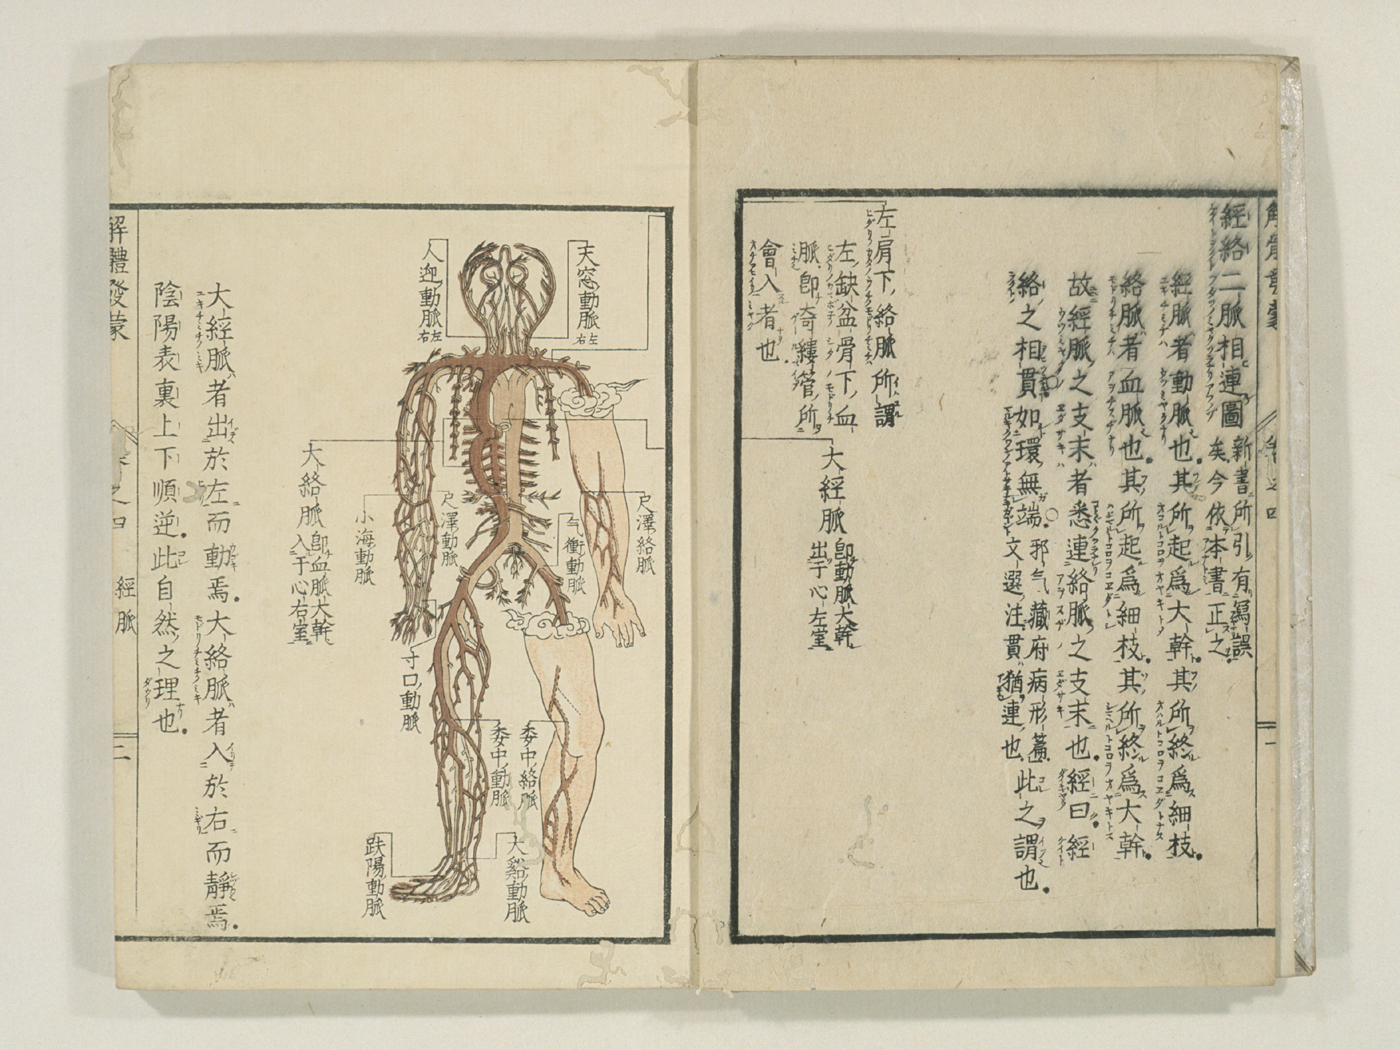 經絡二脈相連圖
新書所引有爲誤
矣今依本書正之
經脈者動脈也其所起爲大幹其所終爲細枝
絡脈者血脈也其所起爲細枝其所終爲大幹
故經脈之支末者悉連絡脈之支末也經曰經
絡之相貫如環無端
邪气藏府病形萹
文選注貫猶連也
此之謂也
左肩下絡脈所謂
左缺盆骨下血
脈卽奇縷管所
會入者也
大經脈
卽動脈大幹
出于心左室
天窓動脈
左右
人迎動脈
左右
尺澤絡脈
气衝動脈
尺澤動脈
小海動脈
大絡脈
卽血脈大幹
入于心右室
寸口動脈
委中絡脈
委中動脈
大谿動脈
趺陽動脈
大經脈者出於左而動焉大絡脈者入於右而靜焉
陰陽表裏上下順逆此自然之理也
解體發蒙
之四
經脈
二